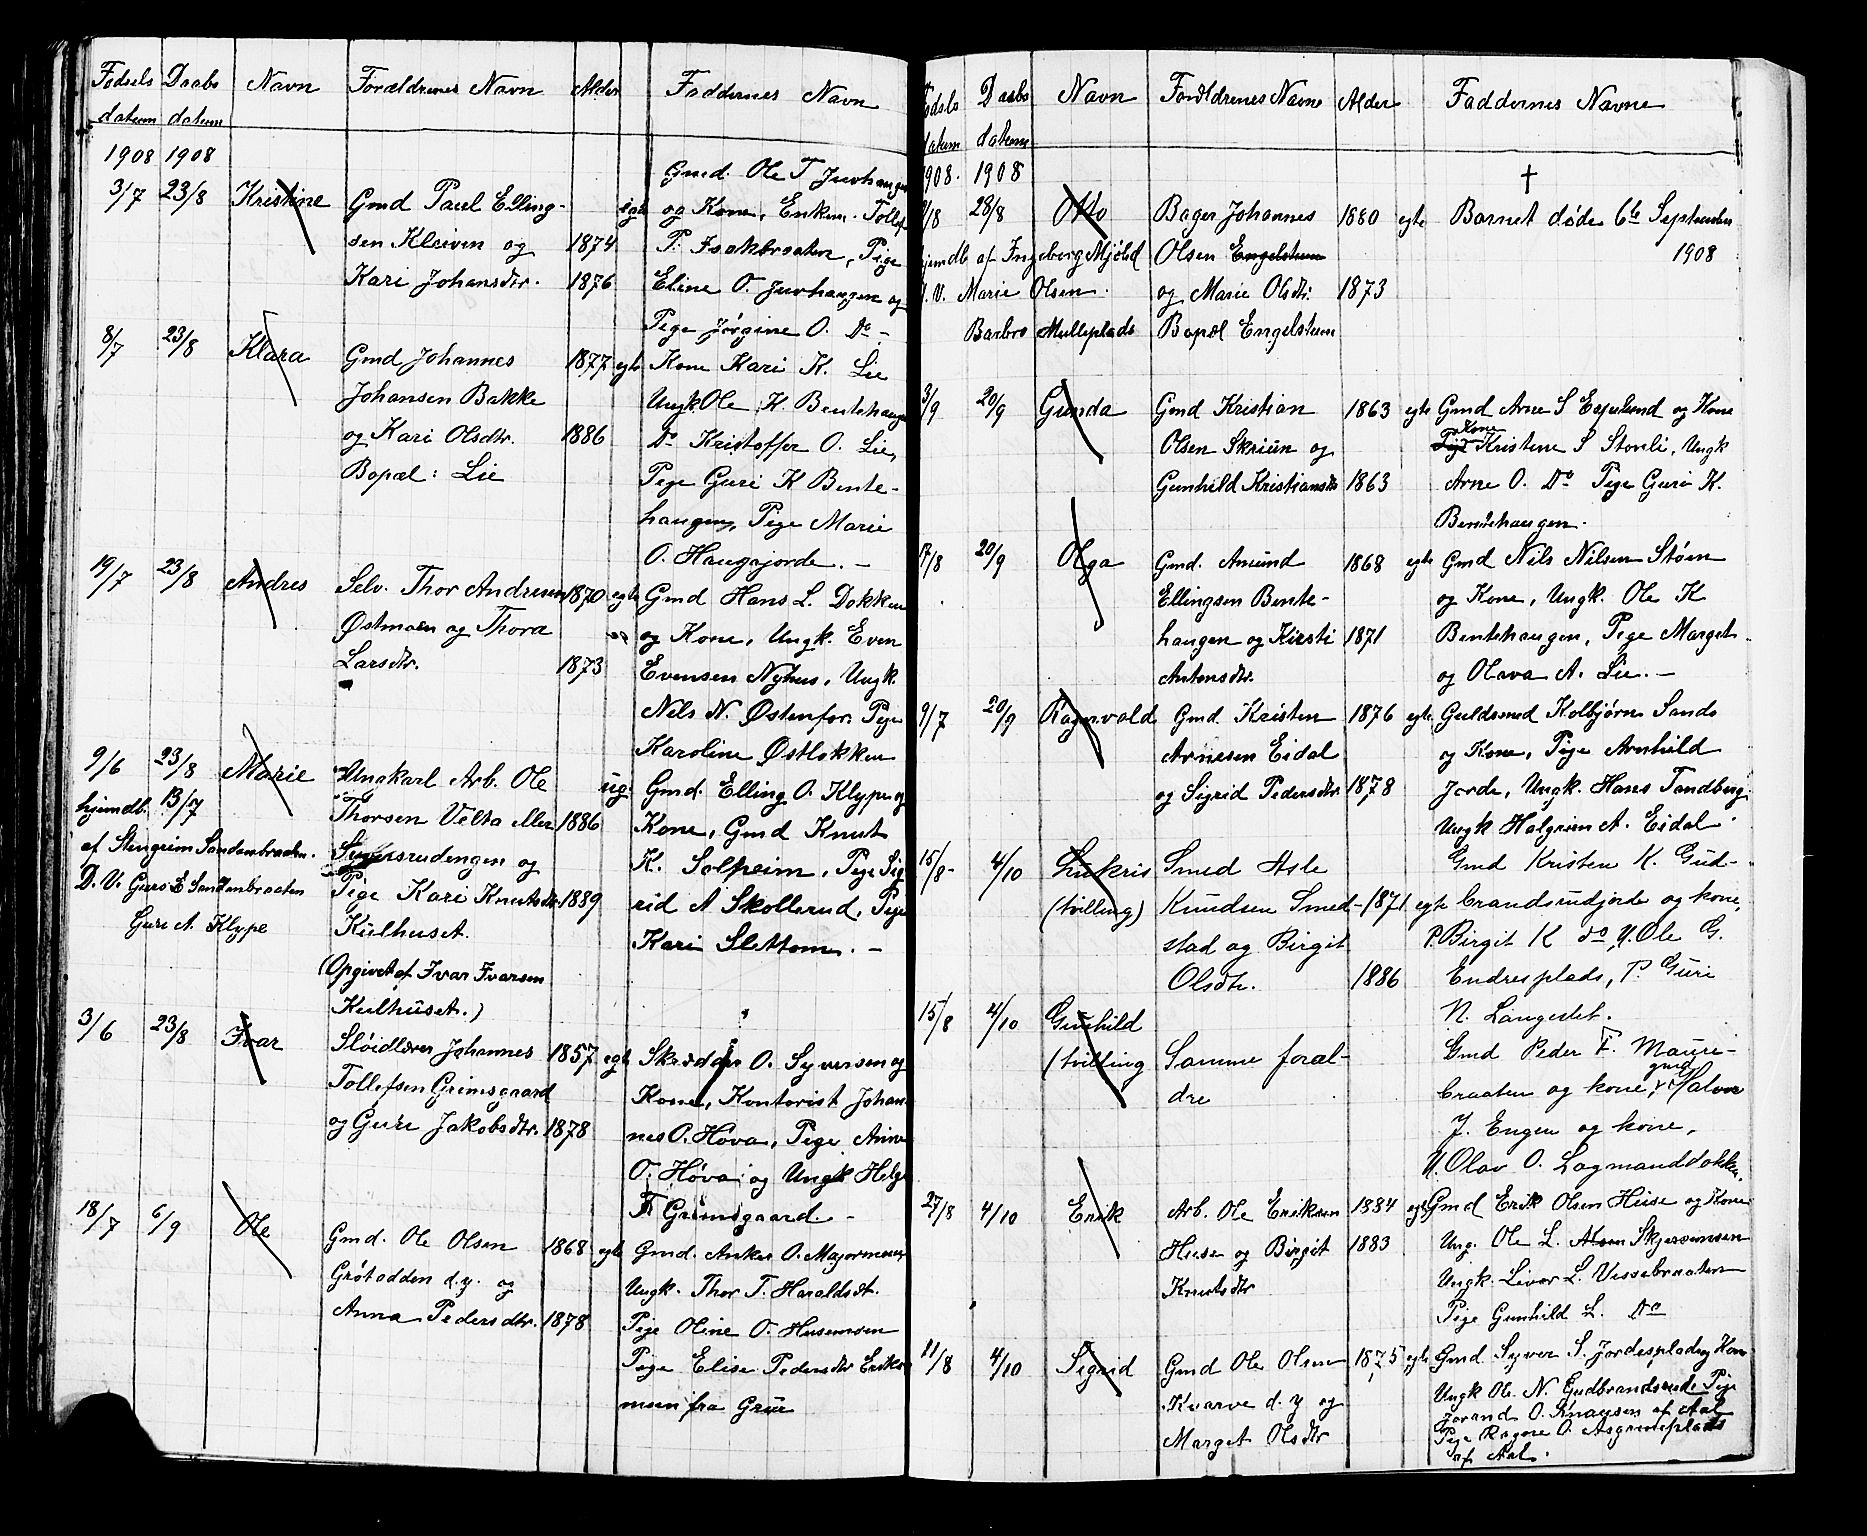 Fødsels Daabs Navn Forældrenes Navn Alder Faddernes Navn
datum datum
1908 1908
3/7 23/8 Kristine Gmd Paul Elling-
sen Kleiven og 1874
Kari Johansdtr. 1876
egte Gmd. Ole T Juvhaugen
og Kone, Enkem. Tollef
P. Isakbraaten, Pige
Eline O. Juvhaugen og
Pige Jörgine O. Do -
8/7 23/8 Klara Gmd Johannes 1877 egte
Johansen Bakke
og Kari Olsdtr. 1886
Bopæl: Lie
Kone Kari K. Lie
Ungk Ole K Bentehaugen
Do Kristoffer O. Lie,
Pige Guri K Bente-
haugen, Pige Marie
O. Haugsjorde. -
19/7 23/8 Andres Selv. Thor Andresen 1870 egte
Østmoen og Thora
Larsdtr. 1873
Gmd Hans L. Dokken
og Kone, Ungk. Even
Evensen Nyhus, Ungk.
Nils N. Østenfor, Pige
Karoline Østlokken
9/6 23/8 Marie Ungkarl Arb. Ole ug.
hjemdb. 13/7 Thorsen Velta eller 1886
af Stengrim Sandenbraaten. og
D. V. Guro E Sandenbraaten Pige Kari Knutsdtr. 1889
Guri A. Klype Kulhuset.
(Opgivet af Ivar Ivarsen
Kulhuset.)
Gmd. Elling O. Klype og
Kone, Gmd Knut
K. Solheim, Pige Sig
rid A Skollerud, Pige
Kari Slettomo. -
3/6 23/8 Ivar Slöidlærer Johannes 1857 egte
Tollefsen Grimsgaard
og Guri Jakobsdtr. 1878
Skrædder O. Syversen og
Kone, Kontorist Johan-
nes O. Hova, Pige Anne
O. Höva og Ungk Helge
T Grimsgaard. -
18/7 6/9 Ole Gmd. Ole Olsen 1868 egte
Grötodden d.y. og
Anna Pedersdtr. 1878
Gmd. Anker O. Majormoen
Ungk. Thor T. Haraldset.
Pige Oline O. Husemoen
Pige Elise Pedersdtr Eriks
moen fra Grue
Fødsels Daabs Navn Forældrenes Navne Alder Faddernes Navne
datum datum
1908. 1908
/8 23/8 Otto Bager Johannes 1880 egte
hjemdb af Ingeborg Mjölid Olsen Engelstum
D. V. Marie Olsen. og Marie Olsdtr. 1873
Barbro Mulleplads Bopæl Engelstum
†
Barnet døde 6te September
1908
3/9 20/9 Gunda Gmd Kristian 1863 egte
Olsen Skriun og
Gunhild Kristiansdtr 1863
Gmd Arne S Espelund og Kone
Pige Kone Kristene S Stonli, Ungk
Arne O. Do Pige Guri K.
Bentehaugen.
17/8 20/9 Olga Gmd. Amund 1868 egte
Ellingsen Bente-
haugen og Kirsti 1871
Antonsdtr.
Gmd Nils Nilsen Støen
og Kone, Ungk. Ole K
Bentehaugen, Pige Marget
og Olava A. Lie. -
9/7 20/9 Ragnvald Gmd. Kristen 1876 egte
Arnesen Eidal
og Sigrid Pedersdtr 1878
Guldsmed Kolbjørn Sando
og Kone, Pige Arnhild
Jorde, Ungk. Hans Tandberg
Ungk Halgrim A. Eidal
15/8 4/10 Lukris Smed Asle
(tvilling) Knudsen Smed- 1871 egte
stad og Birgit
Olsdtr. 1886
Gmd Kristen K. Gud-
brandsrudjorde og kone,
P. Birgit K do, U. Ole G.
Endresplads, P. Guri
N. Langeslet.
15/8 4/10 Gunhild
(tvilling Samme foræl-
dre
Gmd Peder T. Maure-
braaten og kone, gmd Halvor
J. Engen og kone,
U. Olav O. Lagmanddokken.
27/8 4/10 Erik Arb. Ole Eriksen 1884 egte
Huse og Birgit 1883
Knutsdtr
Gmd Erik Olsen Huse og Kone
Ung. Ole L. Skjersemoen
Ungk. Livar L. Vissebraaten
Pige Gunhild L. Do
11/8 4/10 Sigrid Gmd Ole Olsen 1875 egte
Kvarve d.y og
Marget Olsdtr
Gmd. Syver S. Jordesplads og Kone
Ungk Ole N. Gudbrandsrud, Pige
Jorand O. Knausen af Aal
Pige Ragne O. Asgrimsplads
af Aal.